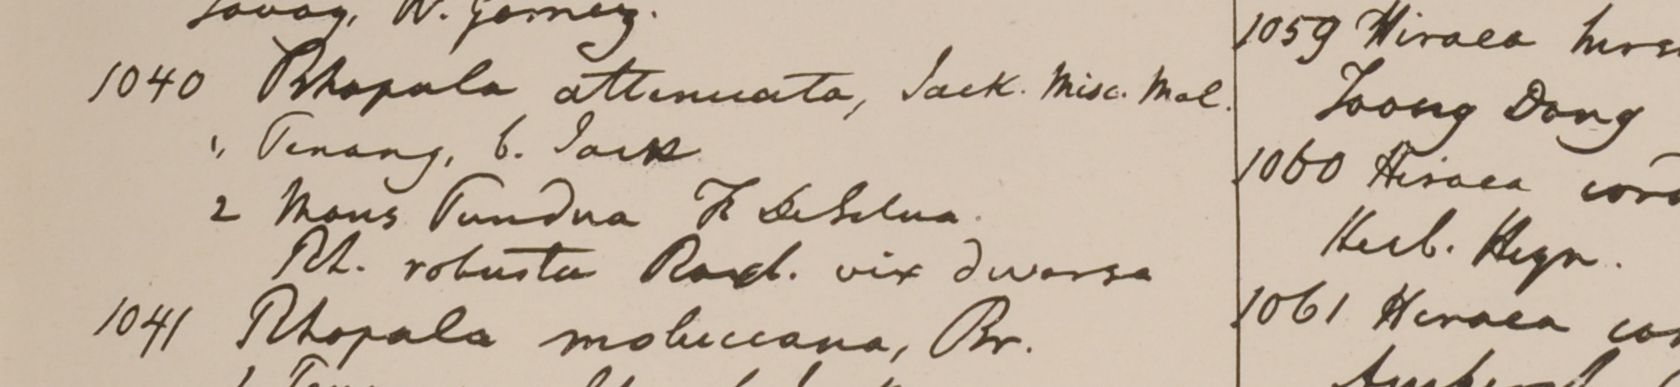 Tavoy, W. Gomez.
1040 Rhopala attenuata, Jack. Misc. Mal.
1, Penang, G. Jack
2 Mons Pundua F DeSilva.
Rh. robusta Roxb. vix diversa
1041 Rhopala moluccana, Br.
1059 Hiraea hirs
Toong Dong
1060 Hiraea cord
Herb. Heyn.
1061 Hiraea